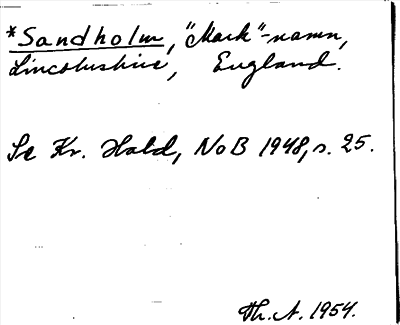 *Sandholm, "Mark"-namn,
Lincolnshire, England.
Se Kr. Hald, NoB 1948, s. 25.
Th. A. 1954.